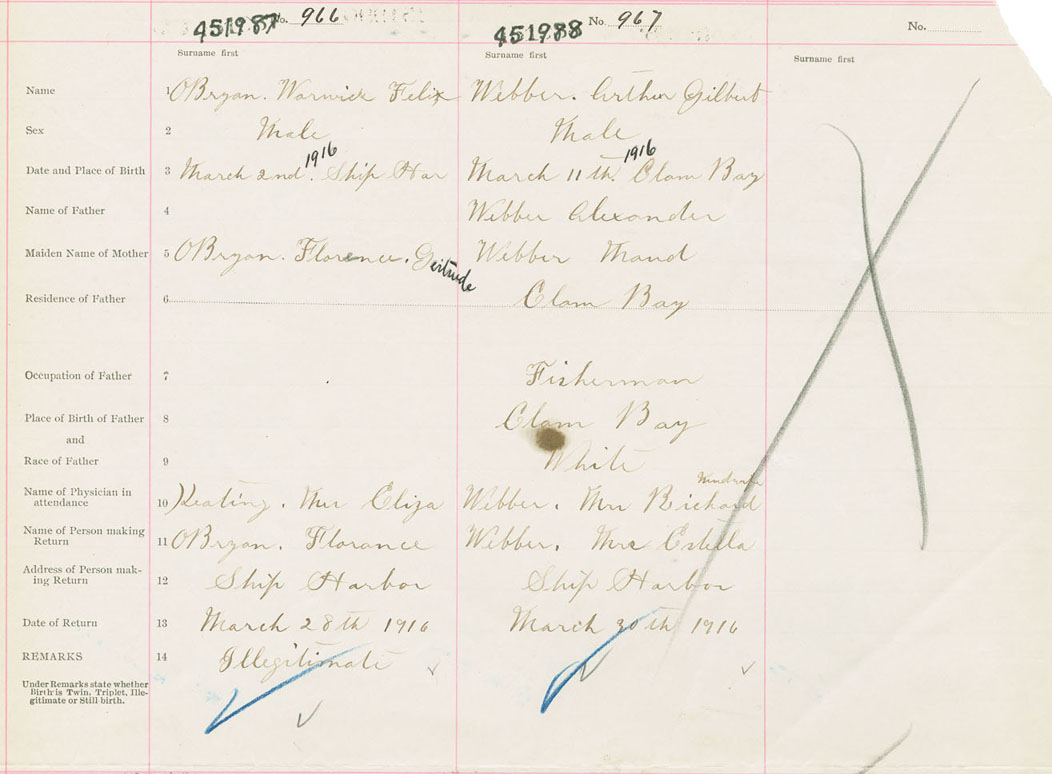 451987 No. 966 451988 No. 967 No.
Surname first Surname first Surname first
Name 1 OBryan. Warwick Felix Webber. Arthur Gilbert
Sex 2 Male Male
1916 1916
Date and Place of Birth 3 March 2nd. Ship Har March 11th. Clam Bay
Name of Father 4 Webber Alexander
Maiden Name of Mother 5 OBryan. Florence. Gertrude Webber Maud
Residence of Father 6 Clam Bay
Occupation of Father 7 Fisherman
Place of Birth of Father 8 Clam Bay
and
Race of Father 9 White
Name of Physician in
attendance 10 Keating. Mrs Eliza Webber. Mrs Richard
Name of Person making
Return 11 OBryan. Florance Webber. Mrs Estella
Address of Person mak-
ing Return 12 Ship Harbor Ship Harbor
Date of Return 13 March 28th 1916 March 30th 1916
REMARKS 14 Illegitimate
Under Remarks state whether
Birth is Twin, Triplet, Ille-
gitimate or Still-birth.